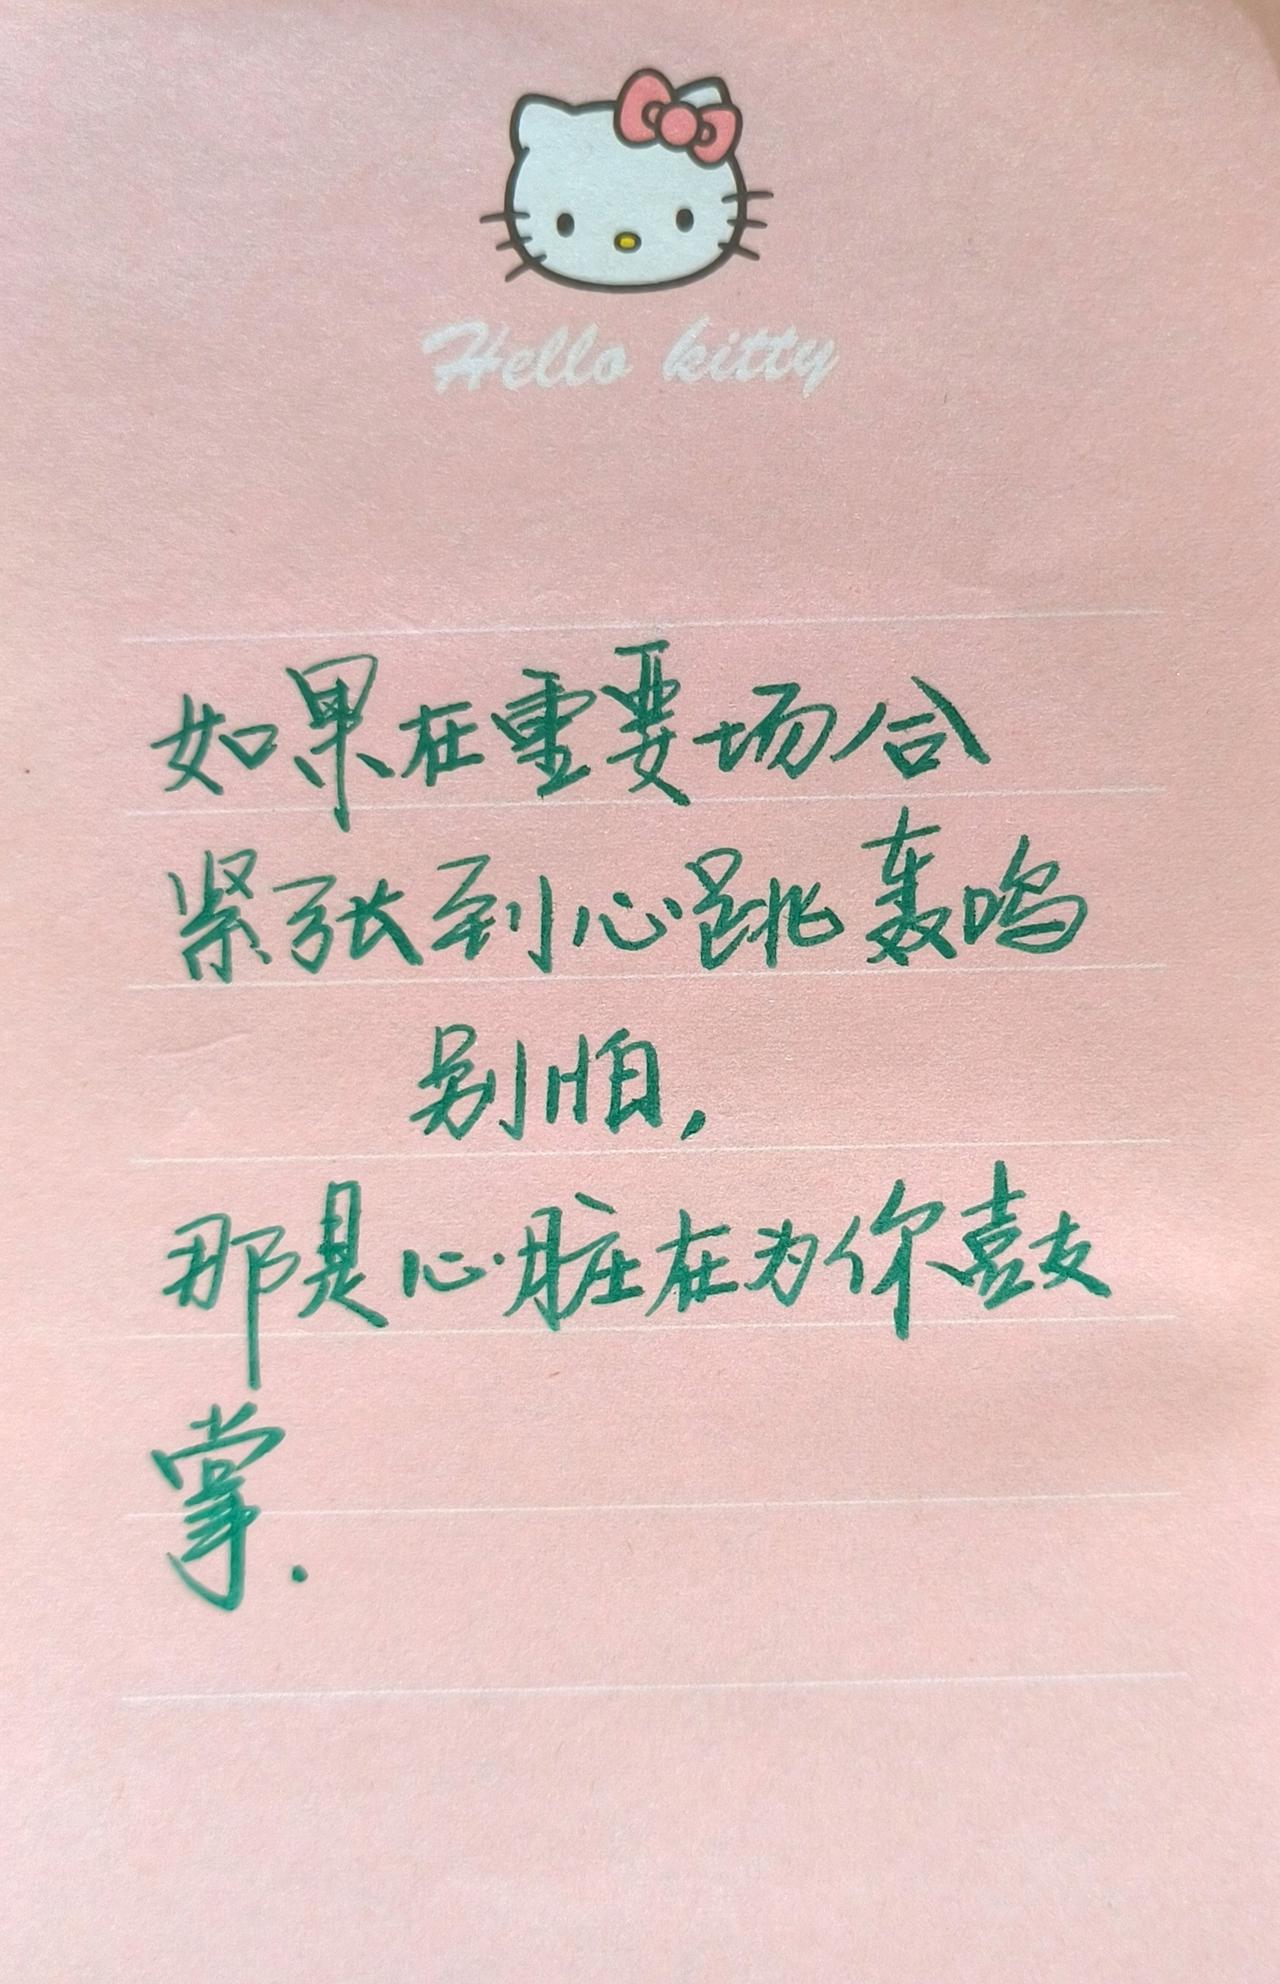 Hello kitty
如果在重要场合
紧张到心跳轰鸣
别怕,
那是心脏在为你鼓
掌.